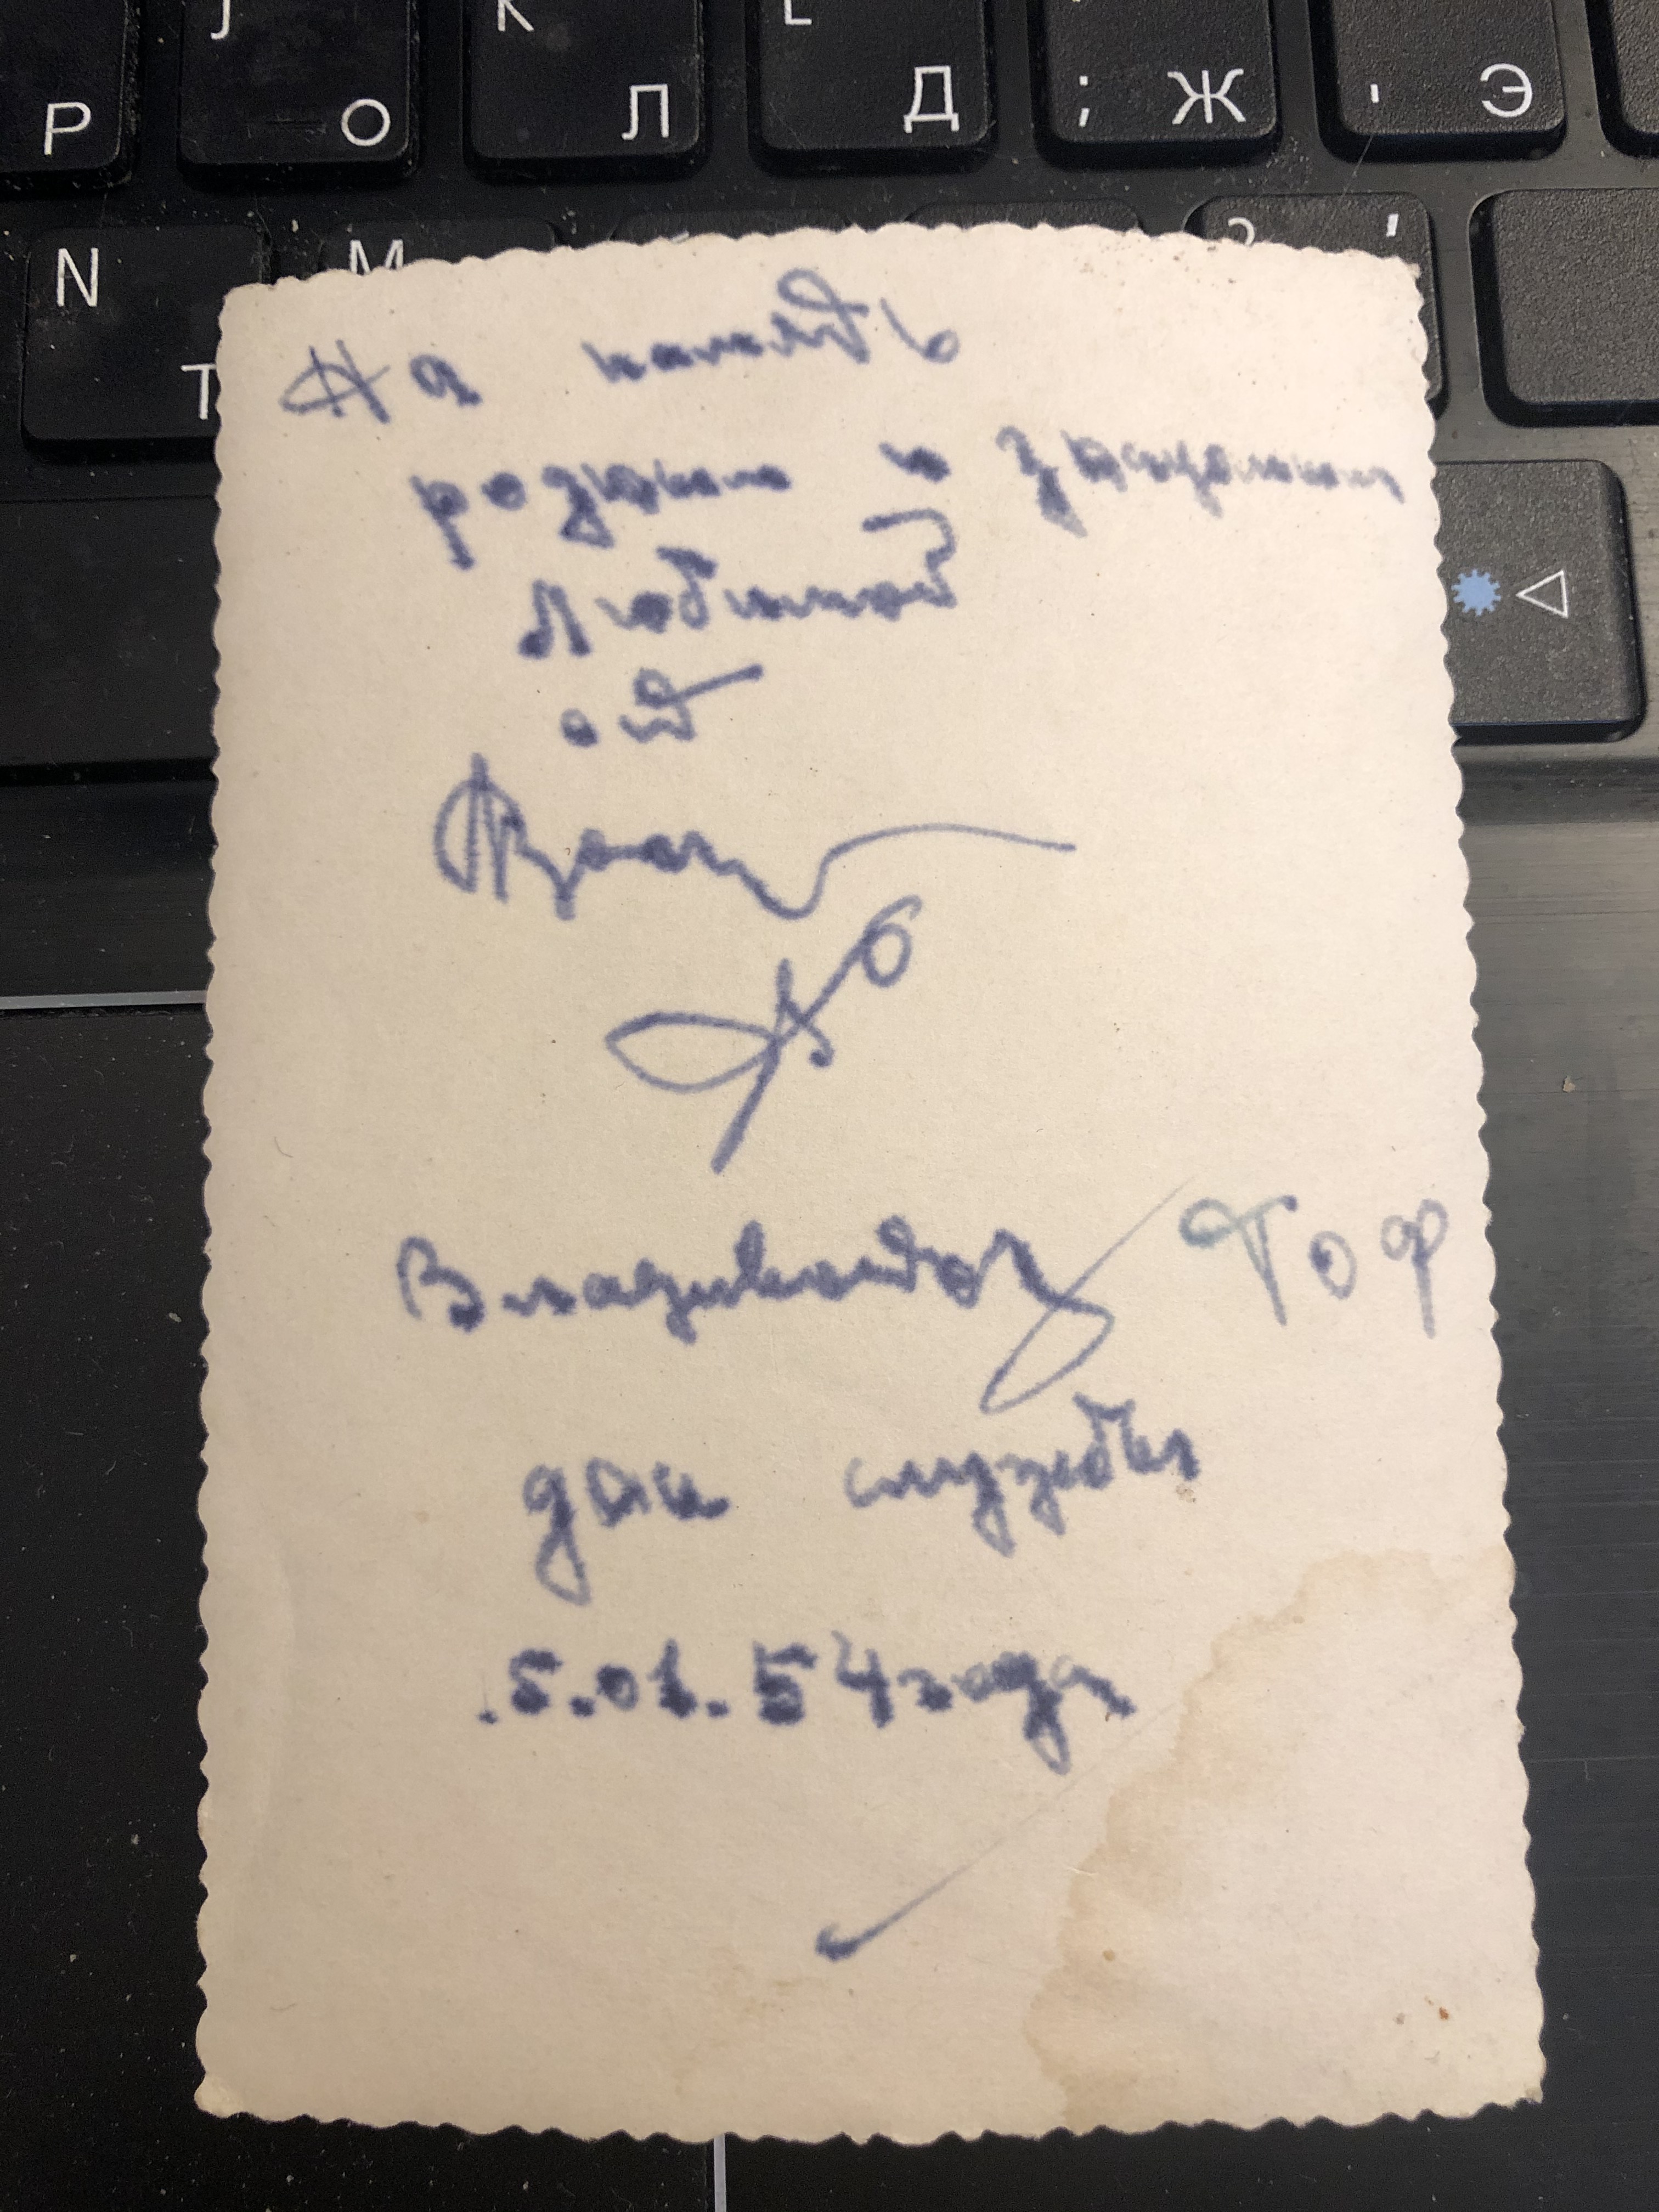 Р О Л Д ; Ж ' Э
N M
Т
На память
родным и знакомым
Любимой
от
Владивосток ТОФ
дни службы
5.01.54 года